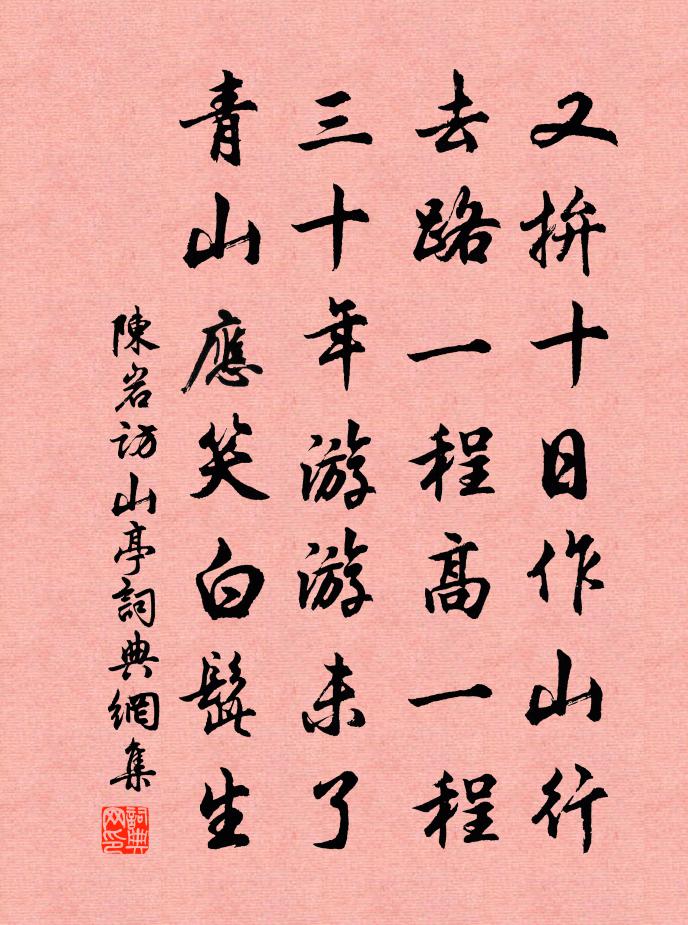 又拚十日作山行
去路一程高一程
三十年游游未了
青山應笑白髭生
陳岩訪山亭詞典網集
詞典网印